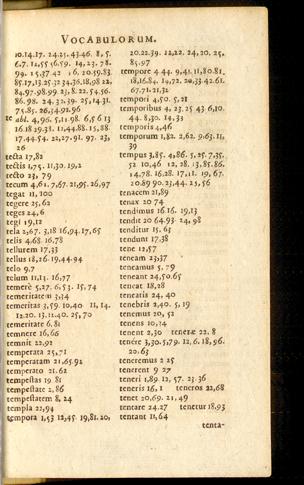 VOCABULORUM.
10.14.17. 24.25. 43.46. 8, 5.
6.7. 12,55 56.59. 14, 23. 78.
94. 15,37 42 16, 20.59.83.
85.17,13.25 32 34.36,18.98 22,
84.97.98.99. 23, 8.22. 54.56.
86.98. 24, 32.39. 25, 14.31.
75.85. 26,54.91.96
te abl. 4,96. 5,11 98. 6,5 6 13
16.18 29.31. 11,44.88. 15,88.
17.44.54. 21,27.91. 97. 23,
26
tecta 17,82
tectis 1,75. 11,30. 19,2
tecto 23, 79
tecum 4,61. 7,67. 21,95. 26,97
tegat 11, 100
tegere 25,62
teges 24,6
tegi 19,12
tela 2,67. 3,18 16,94. 17,65
telis 4,68. 16,78
tellurem 17,33
tellus 18,26. 19,44.94
telo 9,7
telum 11,13. 16,77
temerè 5,27. 6,53. 15, 74
temeritatem 3,14
temeritas 3,59. 10,40 11, 14.
12,20. 13,11.40. 25, 70
temeritate 6,81
temnere 16,66
temnit 22,91
temperata 25,71
temperatam 21,65.92
temperato 21.62
tempestas 19 81
tempestate 2,86
tempestatem 8, 24
templa 22,94
tempora 1,53 12,45. 19,81.20,
20.22.39. 12,22. 24, 20. 25,
85.97
tempore 4 44. 9,41. 11,80.81.
18,16.84. 19,72. 20,33.42.61.
67.71. 21,32
tempori 4,50. 5,21
temporibus 4, 23. 25 43 6,10.
44. 8,30. 14, 33
temporis 4,46
temporum 1,82. 2,62. 9.63. 11,
39
tempus 3,85. 4,86. 5, 25. 7,35.
52 10,46 12, 28. 13,85.86.
14,78. 16.28. 17,11. 19, 67.
20.89 90. 23,44. 25, 56
tenacem 21,89
tenax 20 74
tendimus 16.16. 19,13
tendit 20 64.93. 24, 98
tenditur 15. 63
tendunt 17.38
tene 12,57
teneam 23,37
teneamus 5, 79
teneant 24,50.65
teneat 18,28
teneatis 24, 40
tenebris 2,40. 5, 19
tenemus 20, 52
tenens 10,14
tenent 2,30 tenerae 22. 8
tenére 3,30.5,79. 12, 6.18, 96.
20.63
teneremus 2 25
tenerent 9 27
teneri 1,89 12, 57. 23. 36
teneris 16, 1 teneros 22,68
tenet 20,69. 21, 49
tentare 24.27 tenetur 18,93
tentant 11,64
tenta-